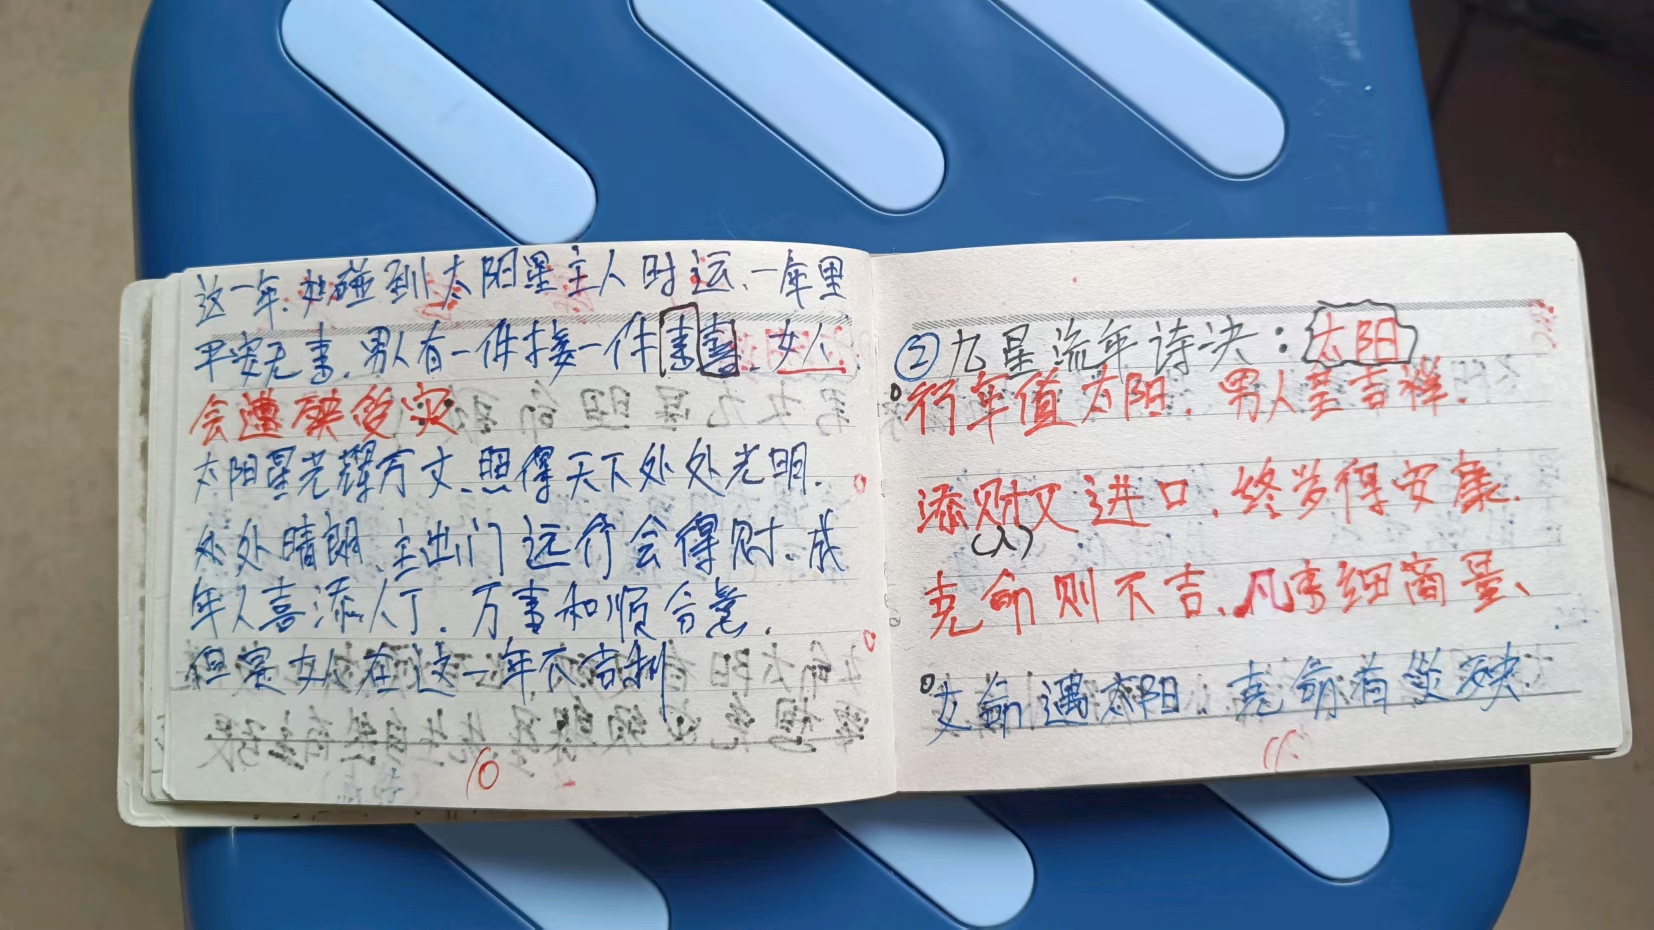 这一年.如碰到太阳星主人时运、一年里
平安无事.男人有一件接一件喜喜.女人
会遭殃受灾
太阳星光耀万丈.照得天下处处光明.
处处晴朗、主出门远行会得财.成
年人喜添人丁.万事和顺合意.
但是女人在这一年不吉利
10
②九星流年诗决:太阳
行年值太阳.男人至吉祥.
添财又进口.终岁得安康.
(人)
克命则不吉、凡事细商量、
女命遇太阳.克命有灾殃.
11.